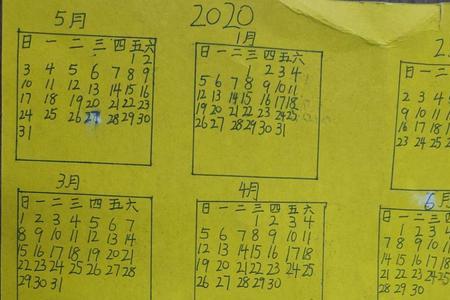 2020
5月
日 一 二 三 四 五 六
1 2
3 4 5 6 7 8 9
10 11 12 13 14 15 16
17 18 19 20 21 22 23
24 25 26 27 28 29 30
31
1月
日 一 二 三 四 五 六
1 2 3 4
5 6 7 8 9 10 11
12 13 14 15 16 17 18
19 20 21 22 23 24 25
26 27 28 29 30 31
2
日 一 二
2 3 4
9 10 11
16 17 18
23 24 25
3月
日 一 二 三 四 五 六
1 2 3 4 5 6 7
8 9 10 11 12 13 14
15 16 17 18 19 20 21
22 23 24 25 26 27 28
29 30 31
4月
日 一 二 三 四 五 六
1 2 3 4
5 6 7 8 9 10 11
12 13 14 15 16 17 18
19 20 21 22 23 24 25
26 27 28 29 30
6月
日 一 二 三
1 2 3
7 8 9 10
14 15 16 17
21 22 23 24
28 29 30